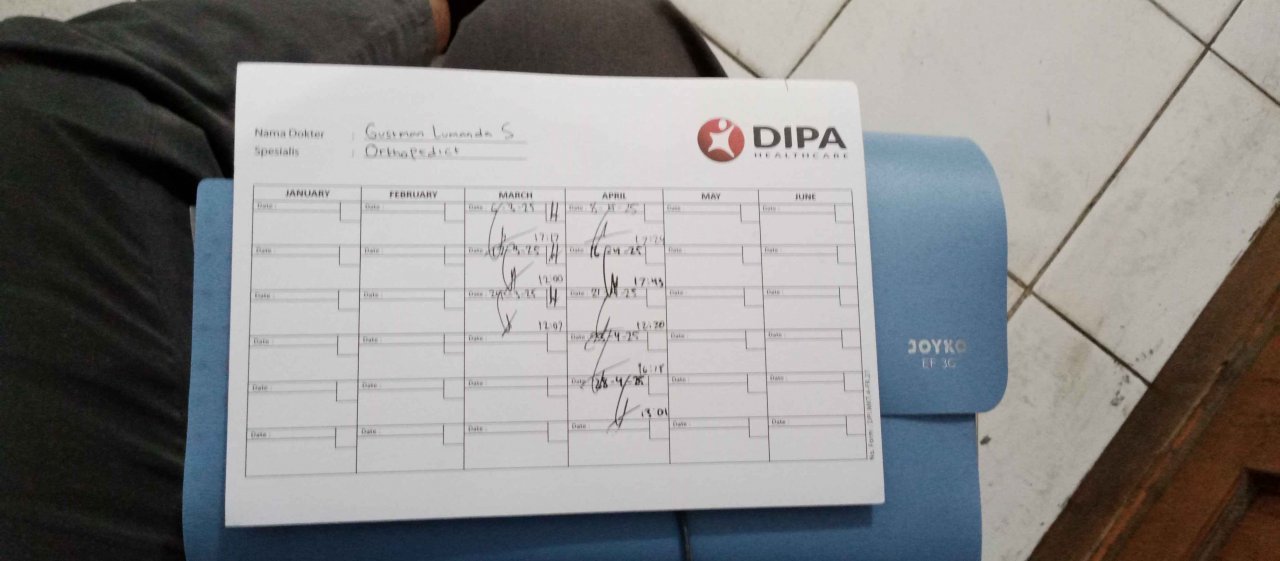 Nama Dokter : Gusman Lumanda S
Spesialis : Orthopedict
DIPA
HEALTHCARE
JANUARY FEBRUARY MARCH APRIL MAY JUNE
Date : Date : Date : 6-3-25 Date : 8-4-25 Date : Date :
17:17 17:24
Date : Date : Date : 3-25 Date : 16-4-25 Date : Date :
12:00 17:43
Date : Date : Date : 3-25 Date : 21-4-25 Date : Date :
12:07 12:30
Date : Date : Date : Date : 4-25 Date : Date :
16:18
Date : Date : Date : Date : 28-4-25 Date : Date :
13:01
Date : Date : Date : Date : Date : Date :
JOYKO
EF 3C